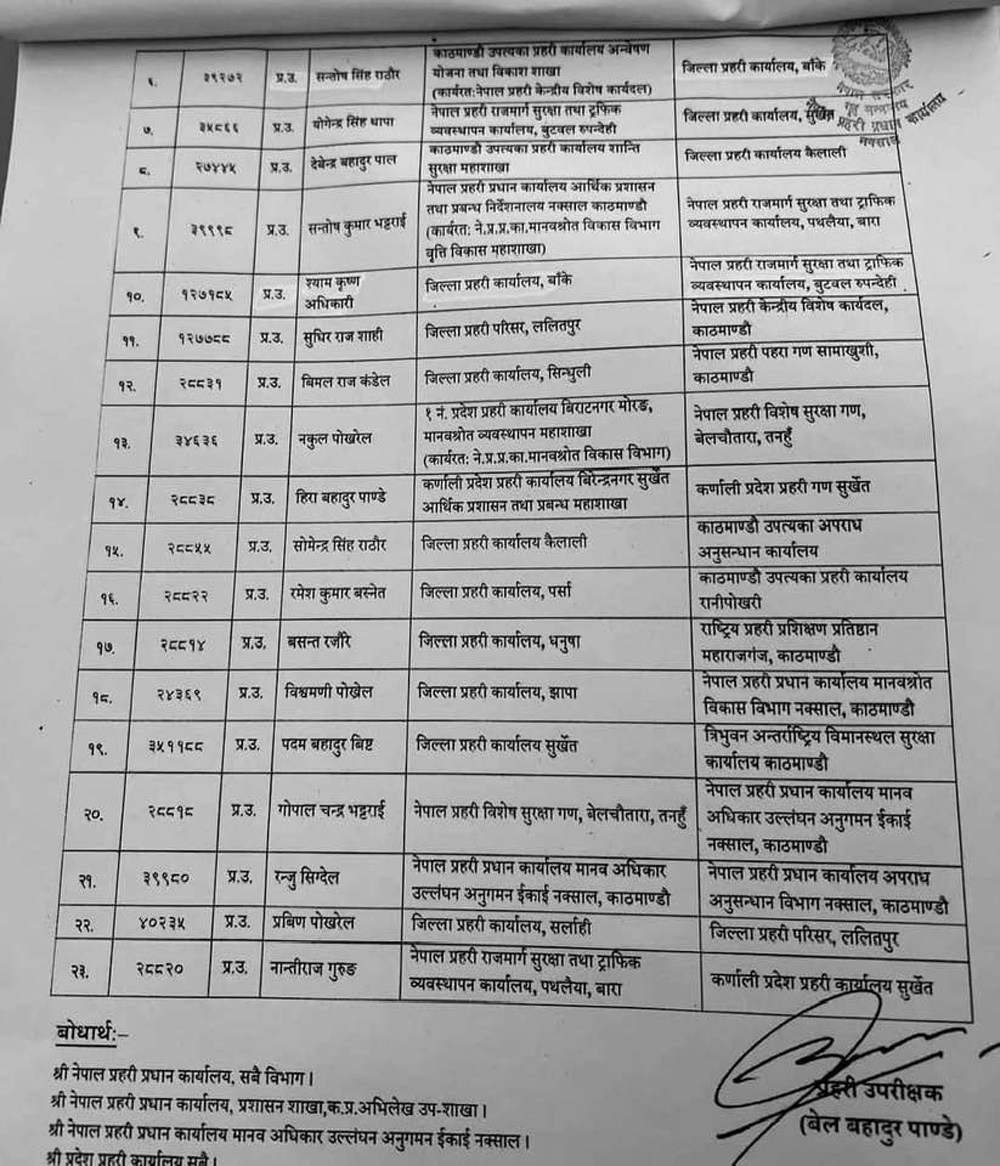 काठमाण्डौ उपत्यका प्रहरी कार्यालय अन्वेषण
६. ३९२७२ प्र.उ. सन्तोष सिंह राठौर योजना तथा विकाश शाखा जिल्ला प्रहरी कार्यालय, बाँके
(कार्यरत:नेपाल प्रहरी केन्द्रीय विशेष कार्यदल)
नेपाल प्रहरी राजमार्ग सुरक्षा तथा ट्राफिक
७. ३५८६६ प्र.उ. योगेन्द्र सिंह थापा व्यवस्थापन कार्यालय, बुटवल रुपन्देही जिल्ला प्रहरी कार्यालय, सुर्खेत
काठमाण्डौ उपत्यका प्रहरी कार्यालय शान्ति
८. २७४४५ प्र.उ. देबेन्द्र बहादुर पाल सुरक्षा महाशाखा जिल्ला प्रहरी कार्यालय कैलाली
नेपाल प्रहरी प्रधान कार्यालय आर्थिक प्रशासन
तथा प्रबन्ध निर्देशनालय नक्साल काठमाण्डौ नेपाल प्रहरी राजमार्ग सुरक्षा तथा ट्राफिक
९. ३९९९८ प्र.उ. सन्तोष कुमार भट्टराई (कार्यरत: ने.प्र.प्र.का.मानवश्रोत विकास विभाग व्यवस्थापन कार्यालय, पथलैया, बारा
वृत्ति विकास महाशाखा)
श्याम कृष्ण नेपाल प्रहरी राजमार्ग सुरक्षा तथा ट्राफिक
१०. १२७१८५ प्र.उ. अधिकारी जिल्ला प्रहरी कार्यालय, बाँके व्यवस्थापन कार्यालय, बुटवल रुपन्देही
नेपाल प्रहरी केन्द्रीय विशेष कार्यदल,
११. १२७७८८ प्र.उ. सुधिर राज शाही जिल्ला प्रहरी परिसर, ललितपुर काठमाण्डौ
नेपाल प्रहरी पहरा गण सामाखुशी,
१२. २८८३१ प्र.उ. बिमल राज कंडेल जिल्ला प्रहरी कार्यालय, सिन्धुली काठमाण्डौ
१ नं. प्रदेश प्रहरी कार्यालय बिराटनगर मोरङ, नेपाल प्रहरी विशेष सुरक्षा गण,
१३. ३४६३६ प्र.उ. नकुल पोखरेल मानवश्रोत व्यवस्थापन महाशाखा बेलचौतारा, तनहुँ
(कार्यरत: ने.प्र.प्र.का.मानवश्रोत विकास विभाग)
कर्णाली प्रदेश प्रहरी कार्यालय बिरेन्द्रनगर सुर्खेत
१४. २८८३८ प्र.उ. हिरा बहादुर पाण्डे आर्थिक प्रशासन तथा प्रबन्ध महाशाखा कर्णाली प्रदेश प्रहरी गण सुर्खेत
काठमाण्डौ उपत्यका अपराध
१५. २८८५५ प्र.उ. सोमेन्द्र सिंह राठौर जिल्ला प्रहरी कार्यालय कैलाली अनुसन्धान कार्यालय
काठमाण्डौ उपत्यका प्रहरी कार्यालय
१६. २८८२२ प्र.उ. रमेश कुमार बस्नेत जिल्ला प्रहरी कार्यालय, पर्सा रानीपोखरी
राष्ट्रिय प्रहरी प्रशिक्षण प्रतिष्ठान
१७. २८८१४ प्र.उ. बसन्त रजौरे जिल्ला प्रहरी कार्यालय, धनुषा महाराजगंज, काठमाण्डौ
नेपाल प्रहरी प्रधान कार्यालय मानवश्रोत
१८. २४३६९ प्र.उ. विश्वमणी पोख्रेल जिल्ला प्रहरी कार्यालय, झापा विकास विभाग नक्साल, काठमाण्डौ
त्रिभुवन अन्तर्राष्ट्रिय विमानस्थल सुरक्षा
१९. ३५११८८ प्र.उ. पदम बहादुर बिष्ट जिल्ला प्रहरी कार्यालय सुर्खेत कार्यालय काठमाण्डौ
नेपाल प्रहरी प्रधान कार्यालय मानव
२०. २८८१८ प्र.उ. गोपाल चन्द्र भट्टराई नेपाल प्रहरी विशेष सुरक्षा गण, बेलचौतारा, तनहुँ अधिकार उल्लंघन अनुगमन ईकाई
नक्साल, काठमाण्डौ
नेपाल प्रहरी प्रधान कार्यालय मानव अधिकार नेपाल प्रहरी प्रधान कार्यालय अपराध
२१. ३९९८० प्र.उ. रन्जु सिग्देल उल्लंघन अनुगमन ईकाई नक्साल, काठमाण्डौ अनुसन्धान विभाग नक्साल, काठमाण्डौ
२२. ४०२३५ प्र.उ. प्रबिण पोखरेल जिल्ला प्रहरी कार्यालय, सर्लाही जिल्ला प्रहरी परिसर, ललितपुर
नेपाल प्रहरी राजमार्ग सुरक्षा तथा ट्राफिक
२३. २८८२० प्र.उ. नान्तीराज गुरुङ व्यवस्थापन कार्यालय, पथलैया, बारा कर्णाली प्रदेश प्रहरी कार्यालय सुर्खेत
नेपाल सरकार
गृह मन्त्रालय
प्रहरी प्रधान कार्यालय
नक्साल
बोधार्थ:–
श्री नेपाल प्रहरी प्रधान कार्यालय, सबै विभाग।
श्री नेपाल प्रहरी प्रधान कार्यालय, प्रशासन शाखा,क.प्र.अभिलेख उप-शाखा।
श्री नेपाल प्रहरी प्रधान कार्यालय मानव अधिकार उल्लंघन अनुगमन ईकाई नक्साल।
श्री प्रदेश प्रहरी कार्यालय सबै।
प्रहरी उपरीक्षक
(बेल बहादुर पाण्डे)